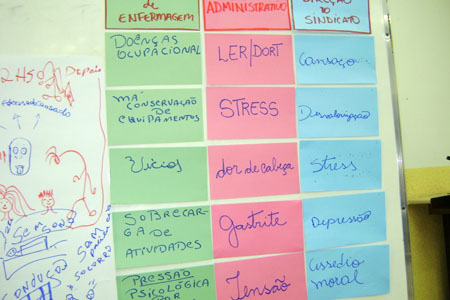 DE ENFERMAGEM
ADMINISTRATIVO
DIREÇÃO DO SINDICATO
DOENÇAS OCUPACIONAL
LER/DORT
Cansaço
MÁ CONSERVAÇÃO DE EQUIPAMENTOS
STRESS
Desvalorização
Vícios
dor de cabeça
Stress
SOBRECARGA DE ATIVIDADES
Gastrite
Depressão
PRESSÃO PSICOLÓGICA POR
Tensão
Assedio moral
2HS
Depois
SEM SONO
SEM
SOCORRO